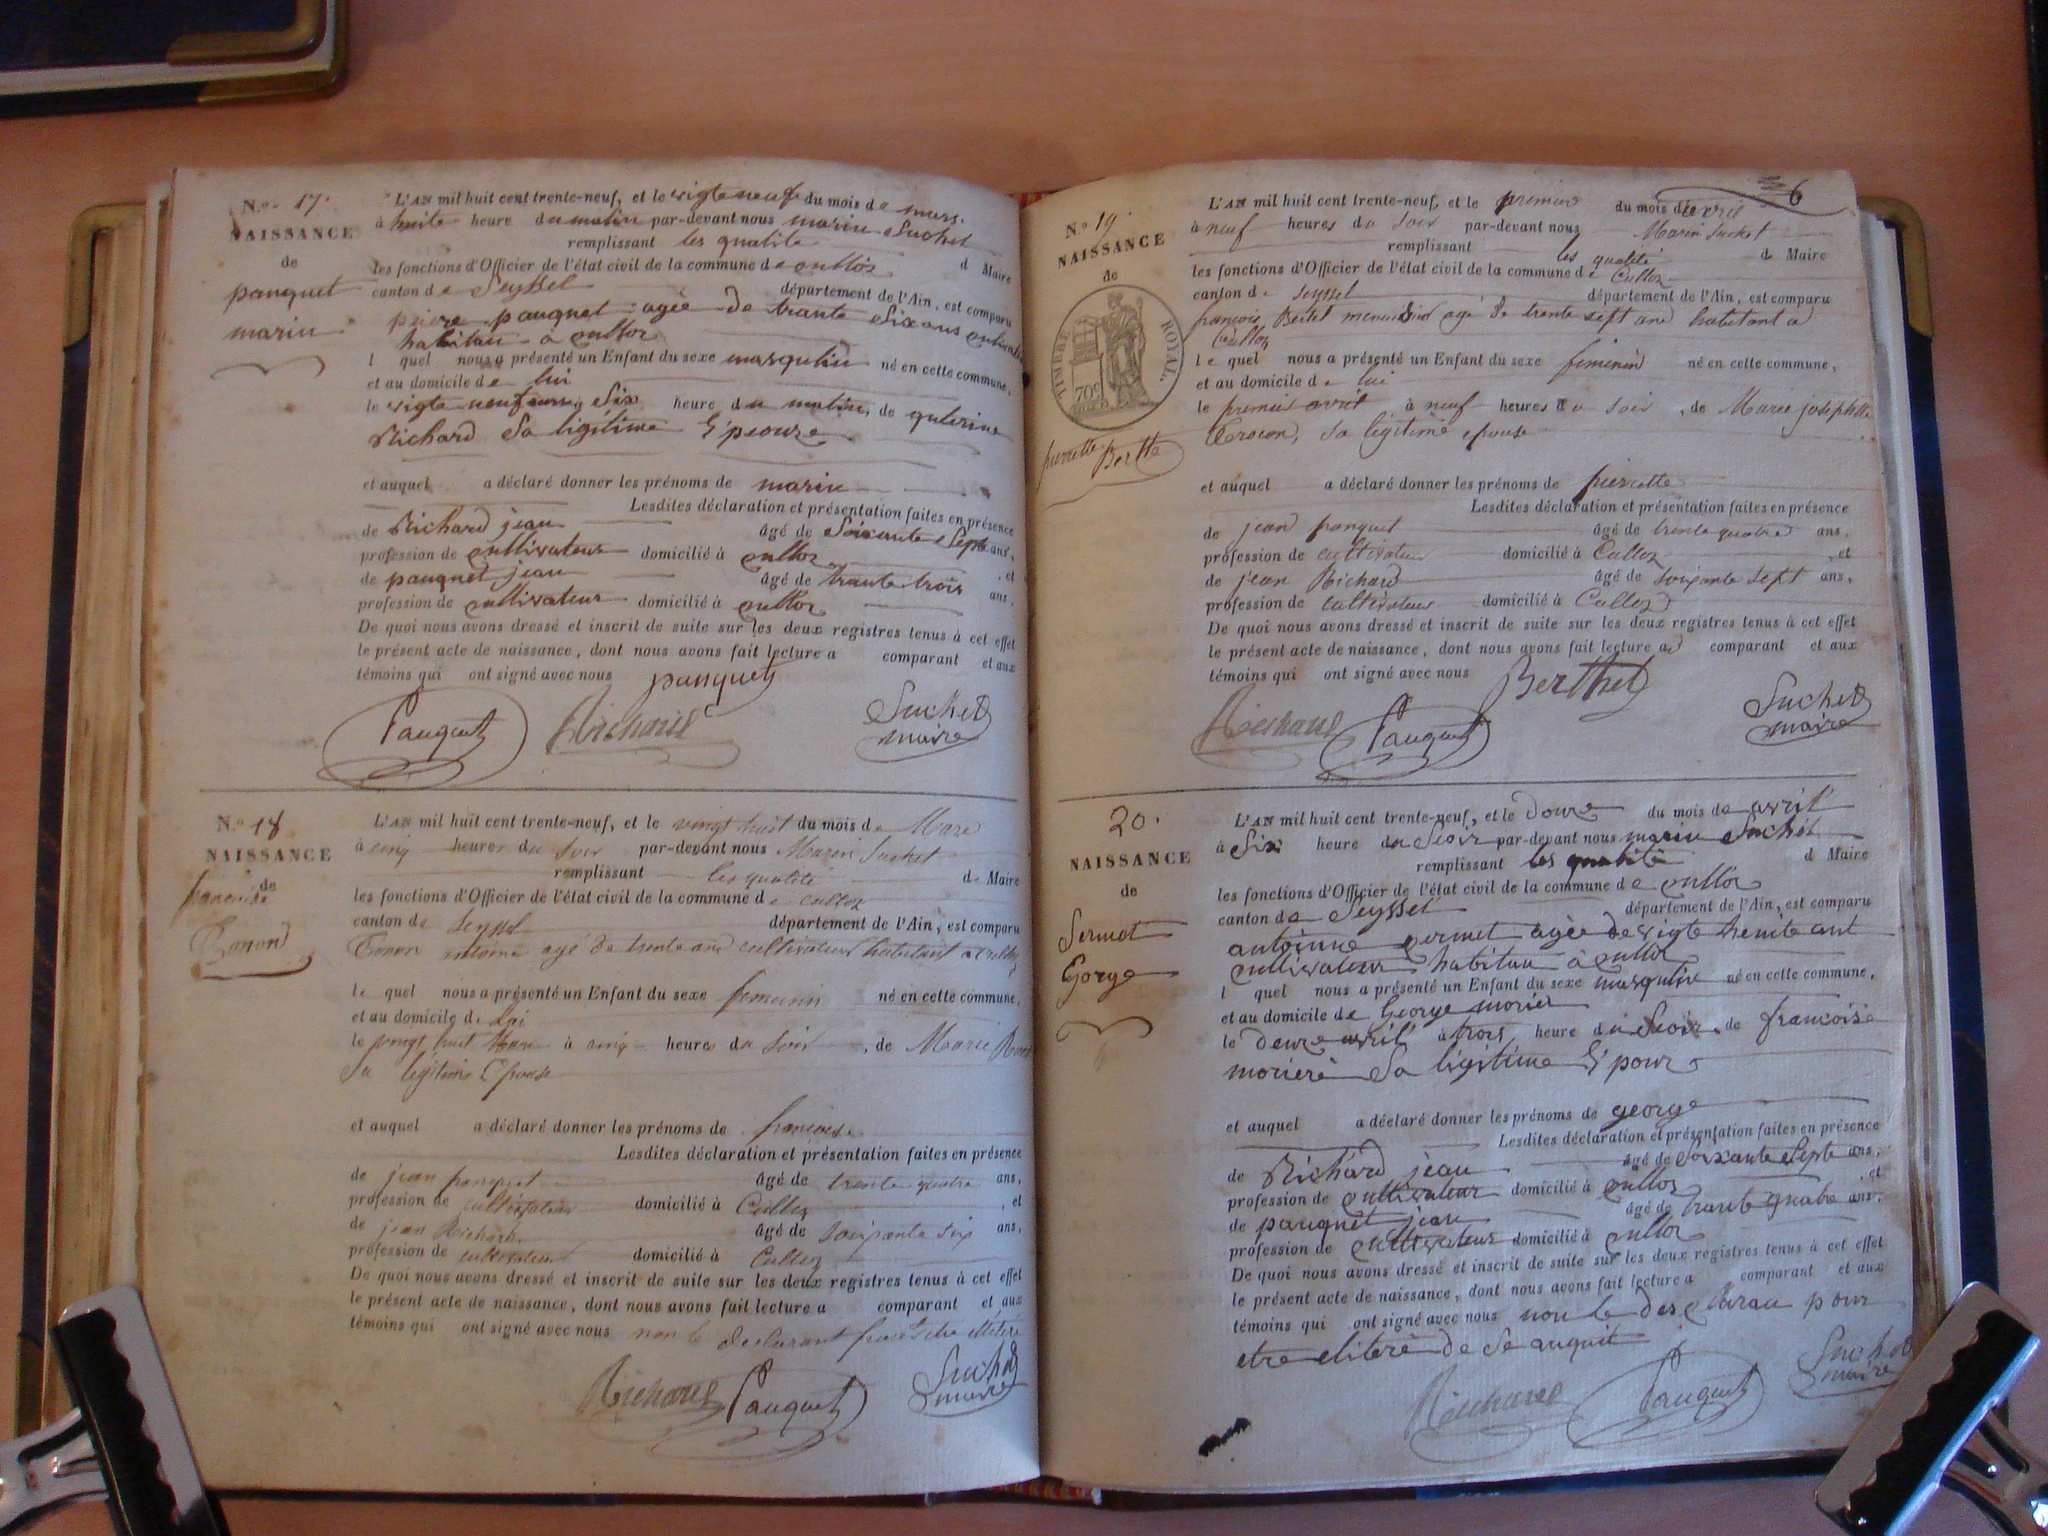 N.o 17.
NAISSANCE
de
pauquet
marin
L'AN mil huit cent trente-neuf, et le vigte neuf du mois de mars.
à huite heure du matin par-devant nous marin Suchet
remplissant les qualite
les fonctions d'Officier de l'état civil de la commune de culloz d Maire
canton de Seyssel département de l'Ain, est comparu
peiere pauquet agée de trante Six ans
habitan à culloz
l quel nous a présenté un Enfant du sexe masqulin né en cette commune,
et au domicile de lui
le vigte neuf mars Six heure du matin, de
Richard Sa ligitime
et auquel a déclaré donner les prénoms de marin
Lesdites déclaration et présentation faites en présence
de Richard jean âgé de Soixante Septe ans,
profession de cultivateur domicilié à culloz et
de pauquet jean âgé de trante trois ans,
profession de cultivateur domicilié à culloz
De quoi nous avons dressé et inscrit de suite sur les deux registres tenus à cet effet
le présent acte de naissance, dont nous avons fait lecture a comparant et aux
témoins qui ont signé avec nous pauquet
Pauquet Richard Suchet
maire
N.o 18
NAISSANCE
de
francoise
Tonond
L'AN mil huit cent trente-neuf, et le vingt huit du mois de Mars
à cinq heures du soir par-devant nous Marin Suchet
remplissant les qualité de Maire
les fonctions d'Officier de l'état civil de la commune de culloz
canton de Seyssel département de l'Ain, est comparu
Tonon antoine agé de trente ans cultivateur habitant a culloz
le quel nous a présenté un Enfant du sexe feminin né en cette commune,
et au domicile de lui
le vingt huit Mars à cinq heures du soir, de Marie
Sa légitime Epouse
et auquel a déclaré donner les prénoms de francoise
Lesdites déclaration et présentation faites en présence
de jean pauquet âgé de trente quatre ans,
profession de cultivateur domicilié à Culloz, et
de jean Richard âgé de soixante six ans,
profession de cultivateur domicilié à Culloz
De quoi nous avons dressé et inscrit de suite sur les deux registres tenus à cet effet
le présent acte de naissance, dont nous avons fait lecture a comparant et aux
témoins qui ont signé avec nous non le declarant
Richard Pauquet Suchet
maire
6
N.o 19
NAISSANCE
de
TIMBRE ROYAL.
70c
pierrette
Berthe
L'AN mil huit cent trente-neuf, et le premier du mois d'avril
à neuf heures du soir par-devant nous Marin Suchet
remplissant les qualité de Maire
les fonctions d'Officier de l'état civil de la commune de Culloz
canton de Seyssel département de l'Ain, est comparu
françois Bertet menuisier agé de trente sept ans habitant a
Culloz
le quel nous a présenté un Enfant du sexe feminin né en cette commune,
et au domicile de lui
le premier avril à neuf heures du soir, de Marie josephette
sa légitime epouse
et auquel a déclaré donner les prénoms de pierrette
Lesdites déclaration et présentation faites en présence
de jean pauquet âgé de trente quatre ans.
profession de cultivateur domicilié à Culloz et
de jean Richard âgé de soixante sept ans,
profession de cultivateur domicilié à Culloz
De quoi nous avons dressé et inscrit de suite sur les deux registres tenus à cet effet
le présent acte de naissance, dont nous avons fait lecture au comparant et aux
témoins qui ont signé avec nous Berthet
Richard Pauquet Suchet
maire
20.
NAISSANCE
de
Sermet
Gorge
L'AN mil huit cent trente-neuf, et le Douze du mois de avril
à Six heure du Seoir par-devant nous marin Suchet
remplissant les qualité d Maire
les fonctions d'Officier de l'état civil de la commune de culloz
canton de Seyssel département de l'Ain, est comparu
antoinne sermet agée de vigte
cultivateur habitan à culloz
l quel nous a présenté un Enfant du sexe masqulin né en cette commune,
et au domicile de George morier
le Douze avril à trois heure du Seoir de francoise
morieré Sa ligitime
et auquel a déclaré donner les prénoms de george
Lesdites déclaration et présentation faites en présence
de Richard jean âgé de Soixante Septe ans,
profession de cultivateur domicilié à culloz, et
de pauquet jean âgé de trante quatre ans.
profession de cultivateur domicilié à culloz
De quoi nous avons dressé et inscrit de suite sur les deux registres tenus à cet effet
le présent acte de naissance, dont nous avons fait lecture a comparant et aux
témoins qui ont signé avec nous non le des claran pour
etre elitere de se
Richard Pauquet Suchet
maire